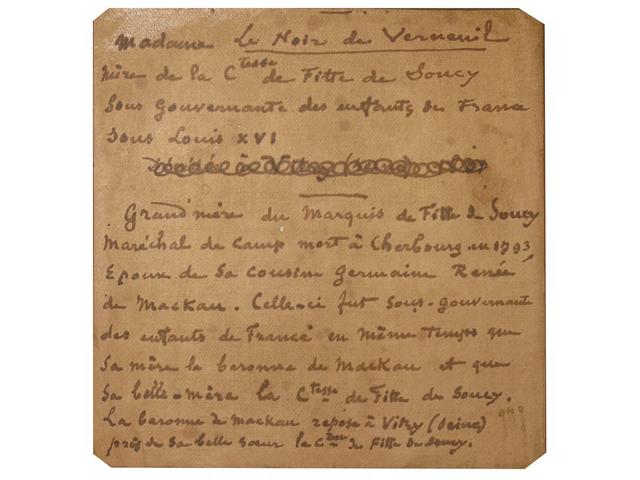 Madame Le Noir de Verneuil
Mère de la Ctesse de Fitte de Soucy
Sous Gouvernante des enfants de France
Sous Louis XVI
Grand'mère du Marquis de Fitte de Soucy
Maréchal de Camp mort à Cherbourg en 1793
Epoux de sa cousine germaine Renée
de Mackau. Celle-ci fut sous-gouvernante
des enfants de France en même temps que
sa mère la baronne de Mackau et que
sa belle-mère la Ctesse de Fitte de Soucy.
La baronne de Mackau repose à Vitry (Seine)
près de sa belle soeur la Ctesse de Fitte de Soucy.